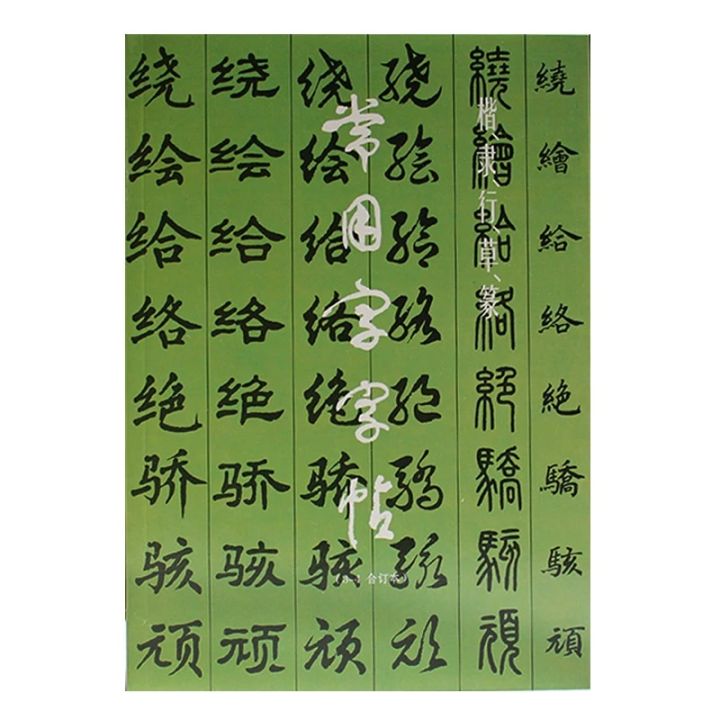 常用字字帖
楷、隶、行、草、篆
合订本
绕绘给络绝骄骇顽
绕绘给络绝骄骇顽
绕绘给络绝骄骇顽
绕绘给络绝驕骇顽
繞繪給絡絕驕駭頑
繞繪給絡絶驕駭頑